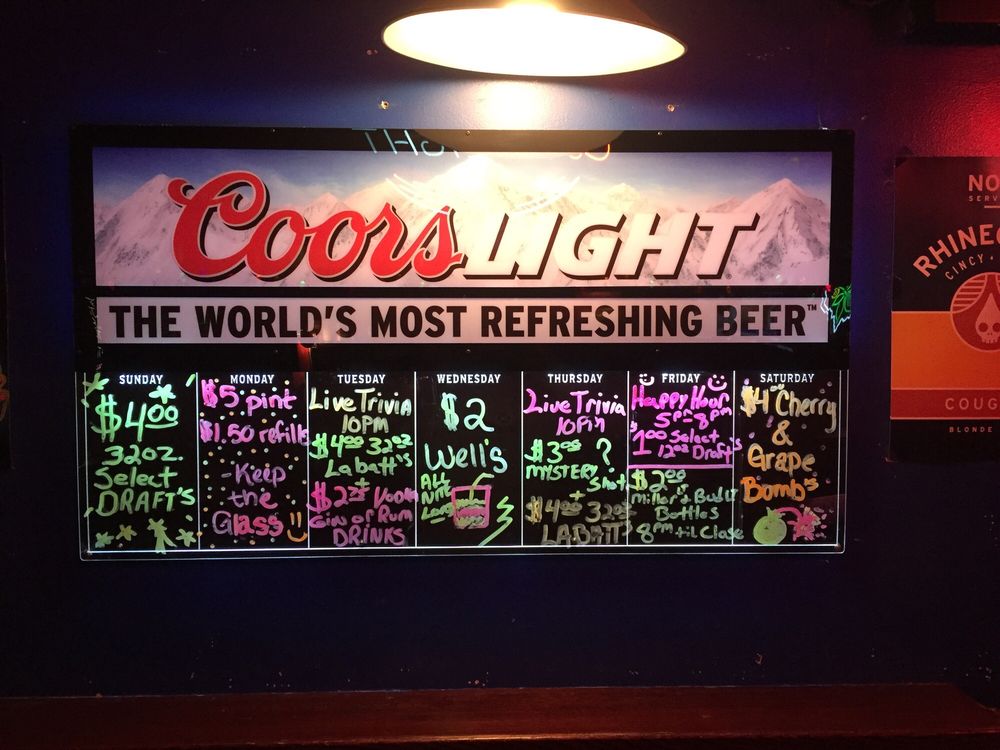 Coors LIGHT
THE WORLD'S MOST REFRESHING BEER™
SUNDAY
$4.00
32oz.
Select
DRAFT'S
MONDAY
$5 pint
$1.50 refills
Keep
the
Glass
TUESDAY
Live Trivia
10PM
$4.00 32oz
Labatt's
+
$2.25 Vodka
Gin or Rum
DRINKS
WEDNESDAY
$2
Well's
ALL
NITE
Long
THURSDAY
Live Trivia
10Pm
$3.00 ?
MYSTERY
Shot
+
$4.00 32oz
LABATT
FRIDAY
Happy Hour
5pm-8pm
$1.00 Select
12oz Draft's
$2.00
Miller's Bud Lt
Bottles
8pm til Close
SATURDAY
$4 Cherry
&
Grape
Bomb's
NO
SERV
RHINEG
CINCY
COUG
BLONDE